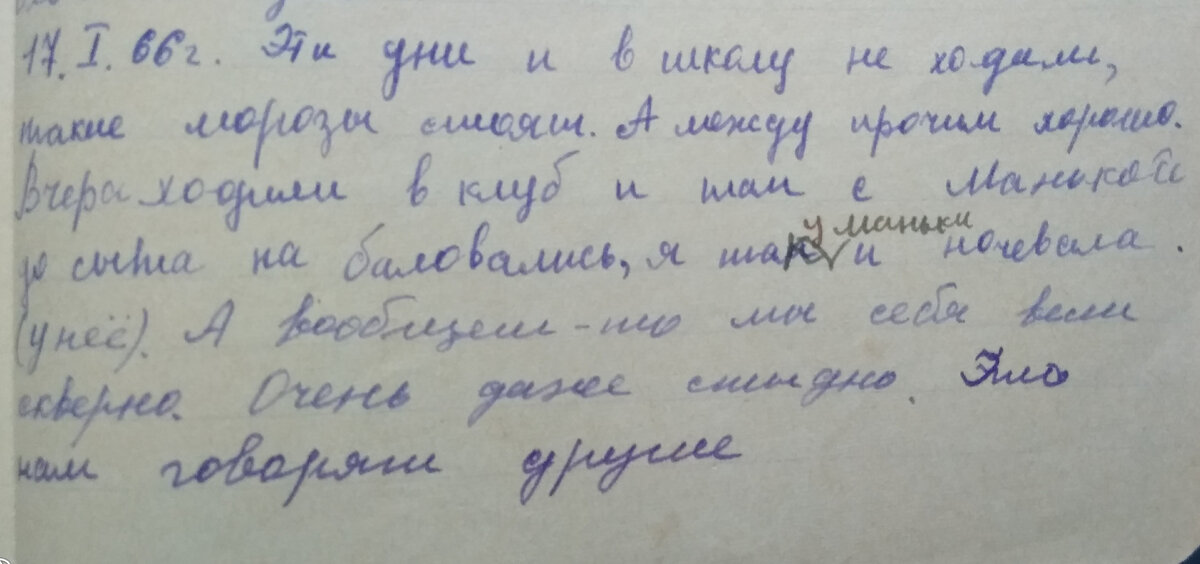 17. I. 66г. Эти дни и в школу не ходили,
такие морозы стоят. А между прочим хорошо.
Вчера ходили в клуб и там с Манькой
у маньки
до сыта на баловались, я так и ночевала.
(у неё). А вообщем-то мы себя вели
скверно. Очень даже стыдно. Это
нам говорят другие